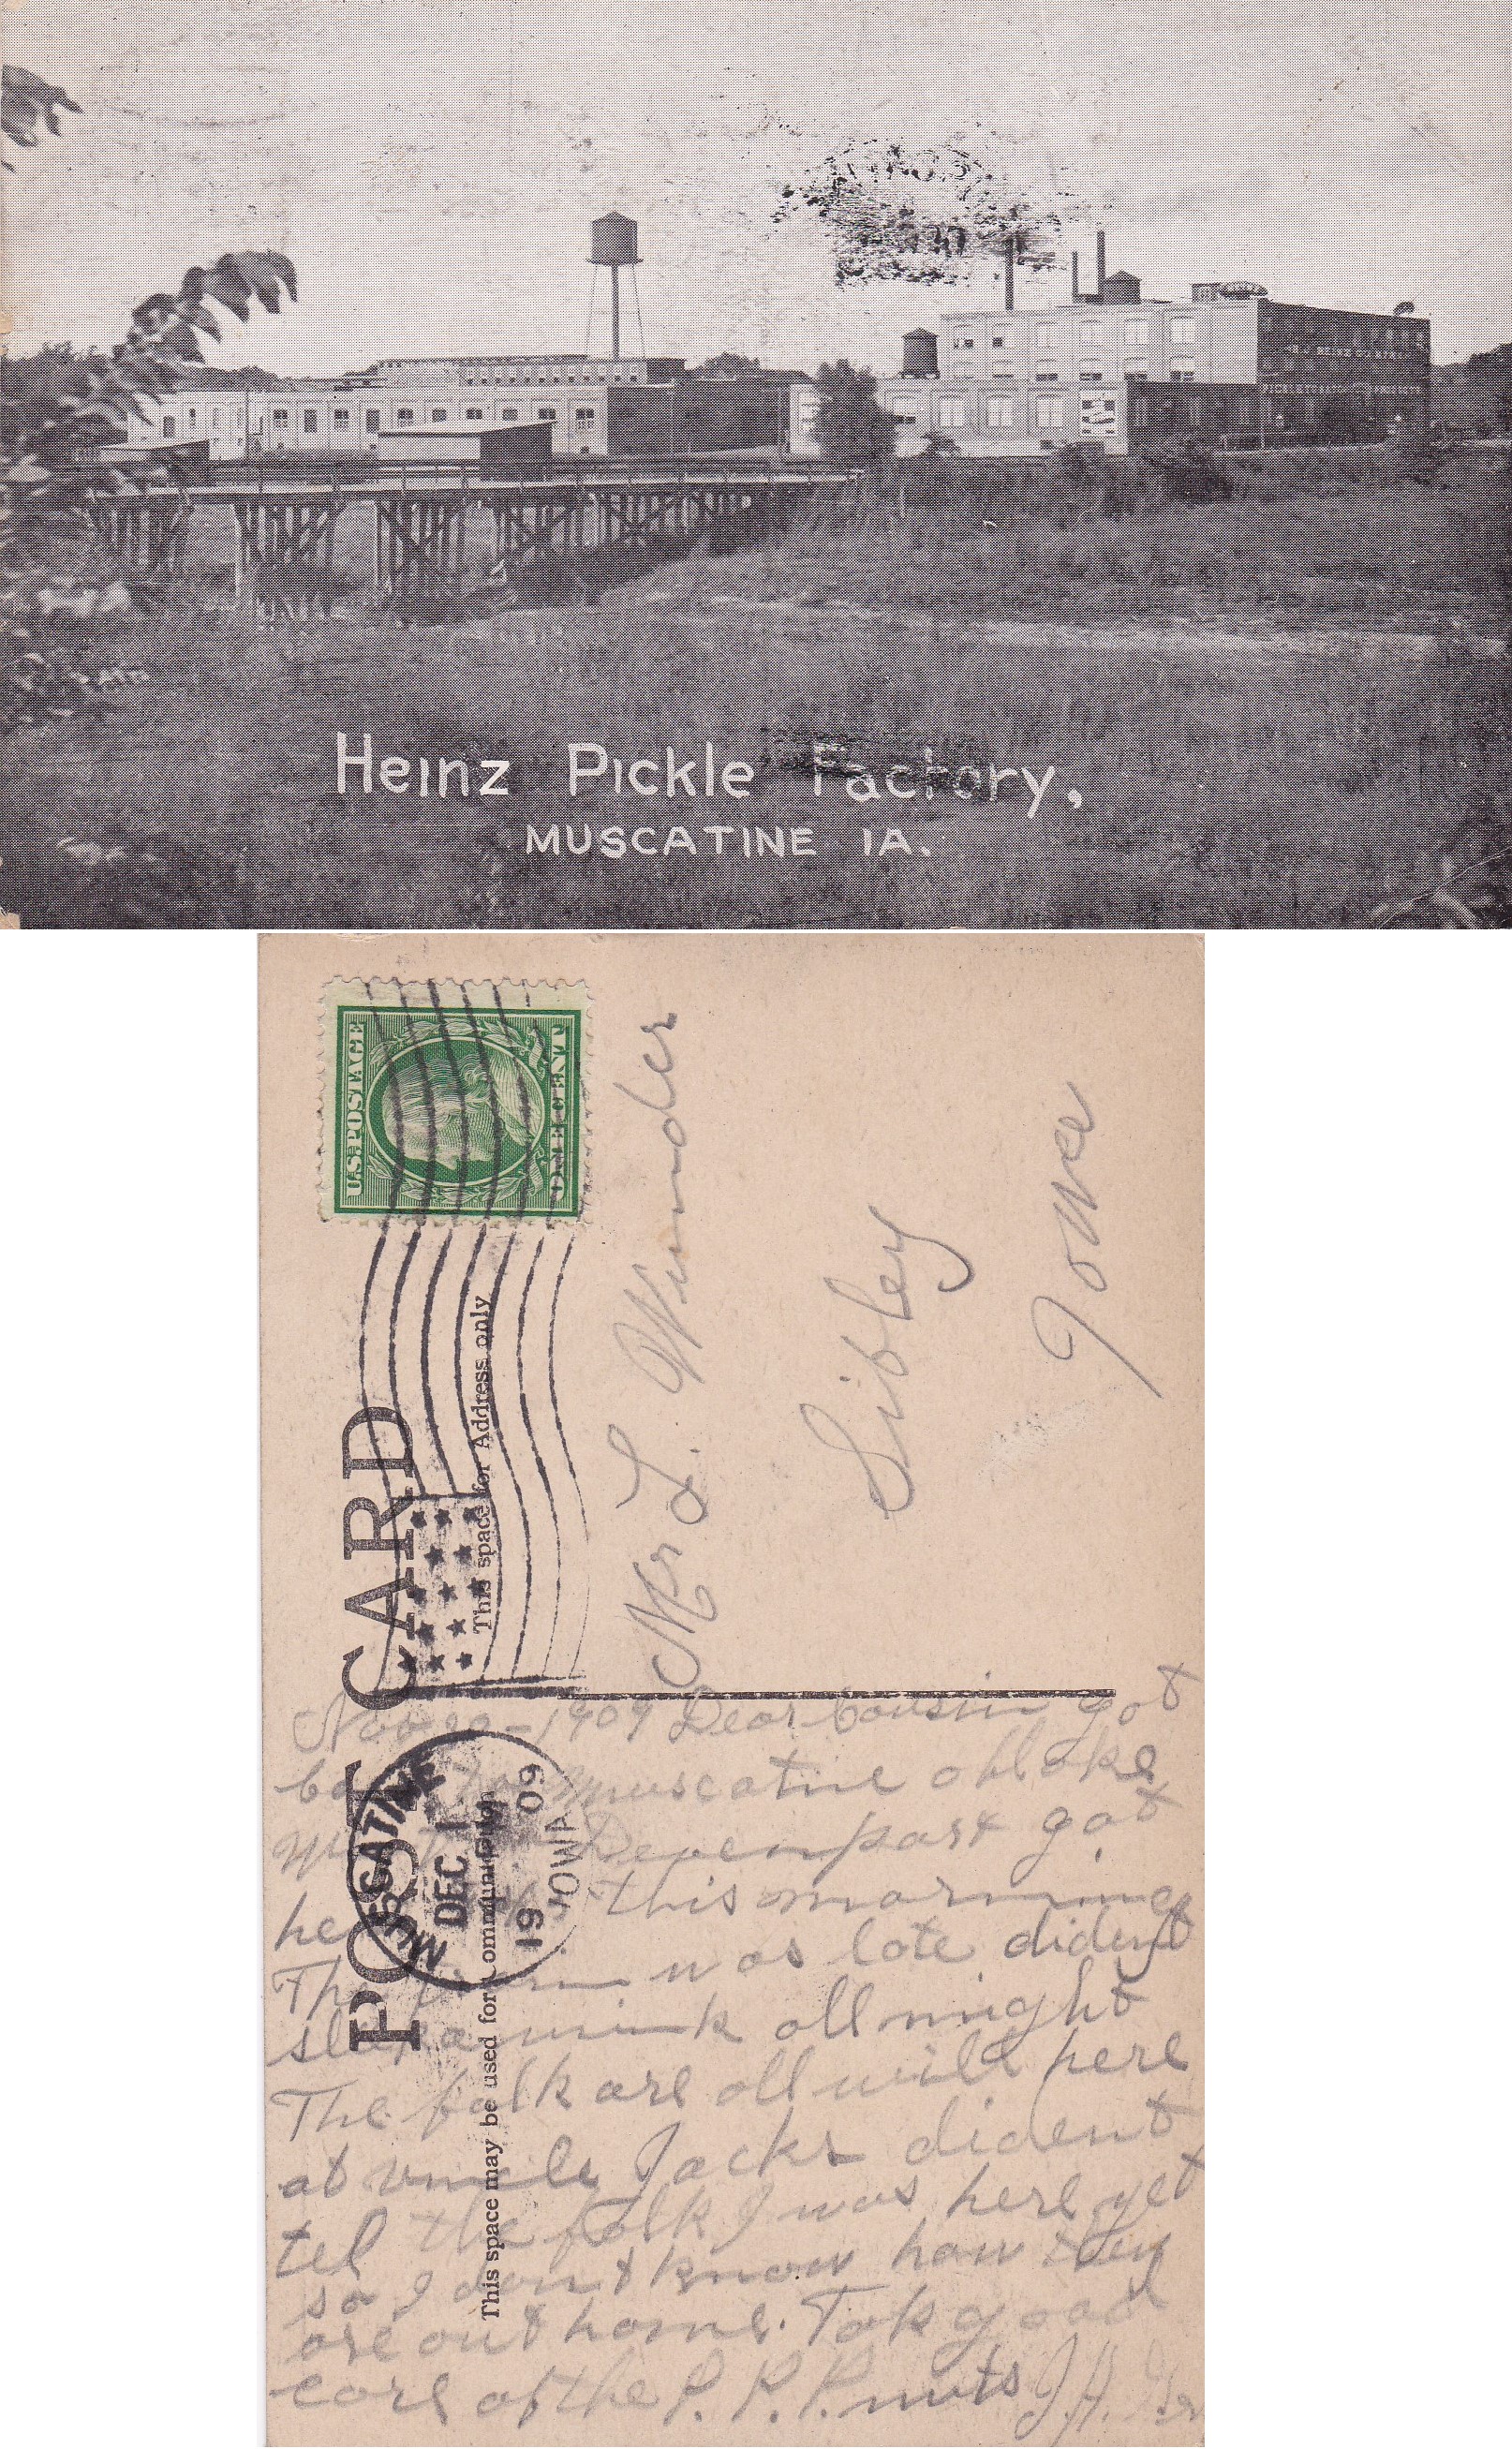 H.J. HEINZ COMPANY
Heinz Pickle Factory,
MUSCATINE IA.
U.S. POSTAGE
ONE CENT
POST CARD
This space for Address only
This space may be used for Communication
MUSCATINE
DEC 1
1909
IOWA
Mr L. Wunder
Sibley
Iowa
Nov 29-1909 Dear Cousin got
to Muscatine all oke
Devenport got
this morning
The train was late dident
sleep a wink all night
The folk are all well here
at uncle Jacks dident
tel the folk I was here yet
so I dont know how they
are out home. Tak good
care of the P. P. P. nuts J. H.